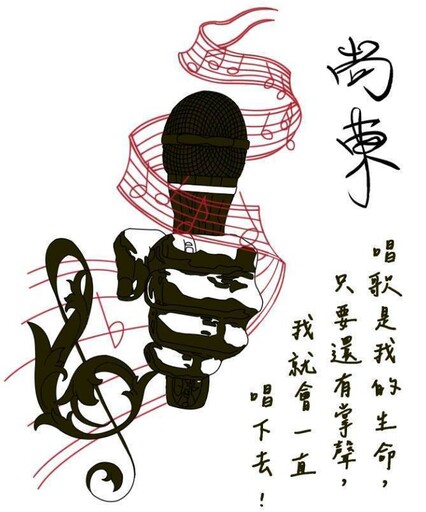 尚東
唱歌是我的生命，
只要還有掌聲，
我就會一直
唱下去！